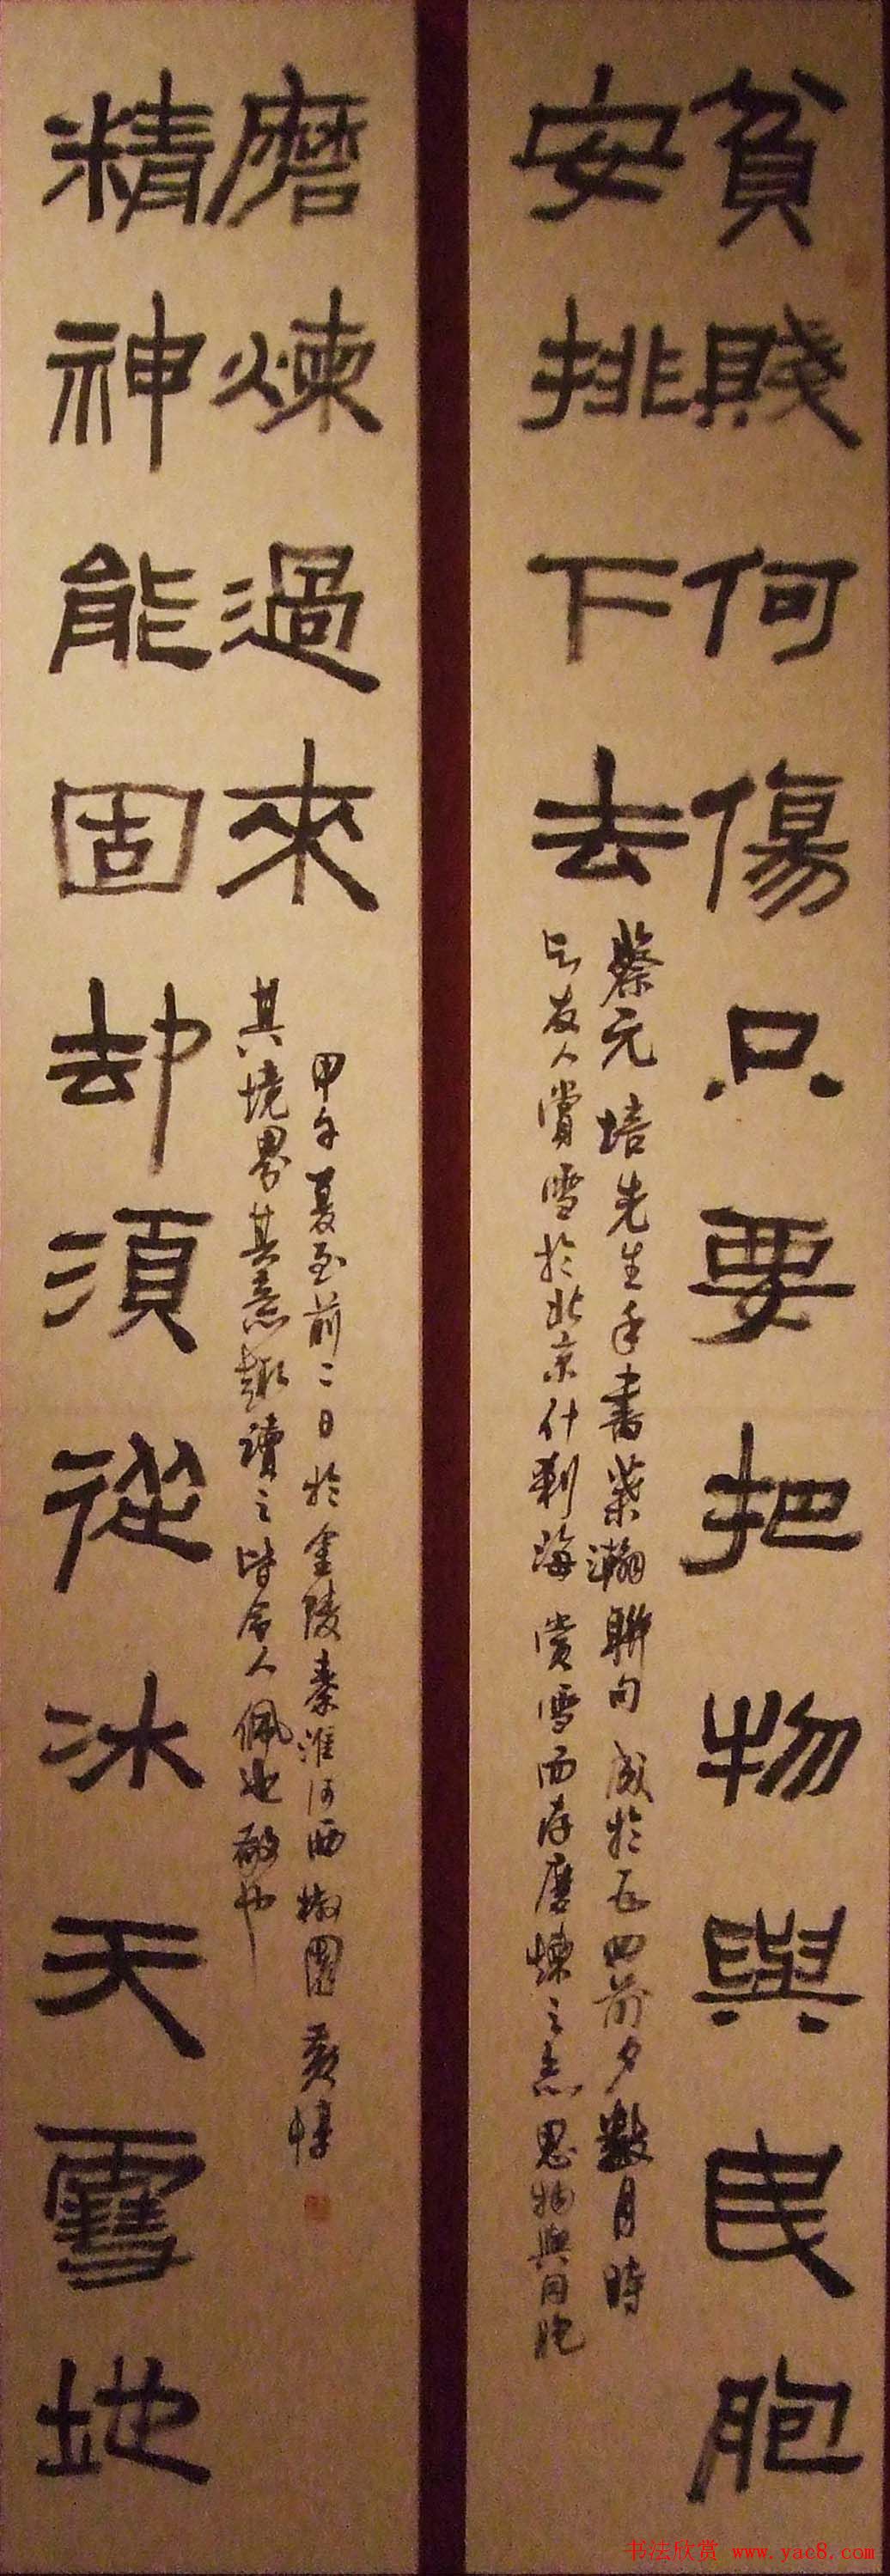 貧賤何傷只要把物與民胞
安排下去
蔡元培先生手書葉瀚聯句成於五四前夕數月時
与友人賞雪於北京什刹海賞雪而存磨煉之志思物與同胞
精神能固却須從冰天雪地
磨煉過來
其境界其意趣讀之皆令人佩也敬也
甲午夏至前二日於金陵秦淮河西椒園黃惇
书法欣赏 www.yac8.com